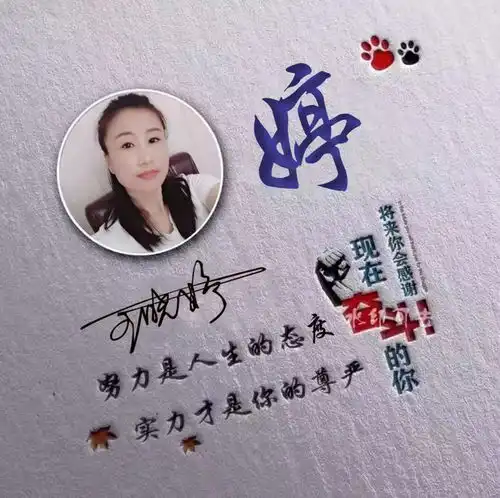 婷
将来你会感谢
现在
奋斗的你
努力是人生的态度
实力才是你的尊严